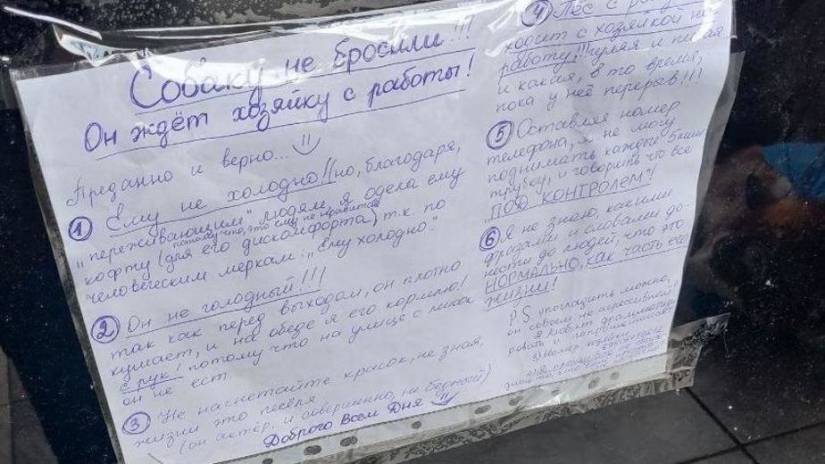 Собаку не бросили!!!
Он ждёт хозяйку с работы!
Преданно и верно...
① Ему не холодно!! но, благодаря,
"переживающим" людям, я одела ему
потому что, это ему не нравится
кофту (для его дискомфорта) т.к. по
человеческим меркам: "Ему холодно."
② Он не голодный!!!
так как перед выходом, он плотно
кушает, и на обеде я его кормлю!
с рук! потому что на улице с миски
он не ест
③ Не насчетайте красок, не зная,
жизни это пёселя
(он актёр, и совершенно, не бедный)
Доброго Всем Дня
④ Пёс с
ходит с хозяйкой на
работу!!! гуляя и писая
и какая, в то время,
пока у неё перерыв!!!
⑤ Оставляя номер
телефона, я не могу
поднимать каждые 5 мин
трубку, и говорить что всё
"ПОД КОНТРОЛЕМ"!
⑥ Я не знаю, какими
фразами и словами до-
нести до людей, что это
НОРМАЛЬНО, как часть его
жизни!
P.S угощать можно,
он собака не агрессивная,